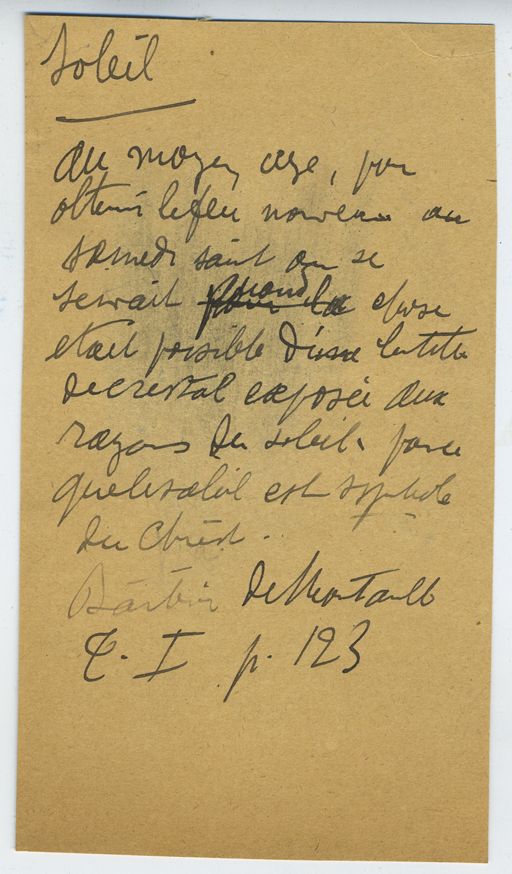 Soleil
Au moyen age, pour
obtenir le feu nouveau au
samedi saint on se
servait quand la chose
etait possible d'une lentille
de cristal exposée aux
rayons du soleil, parce
que le soleil est symbole
du Christ.
Barbier de Montault
T. I p. 123